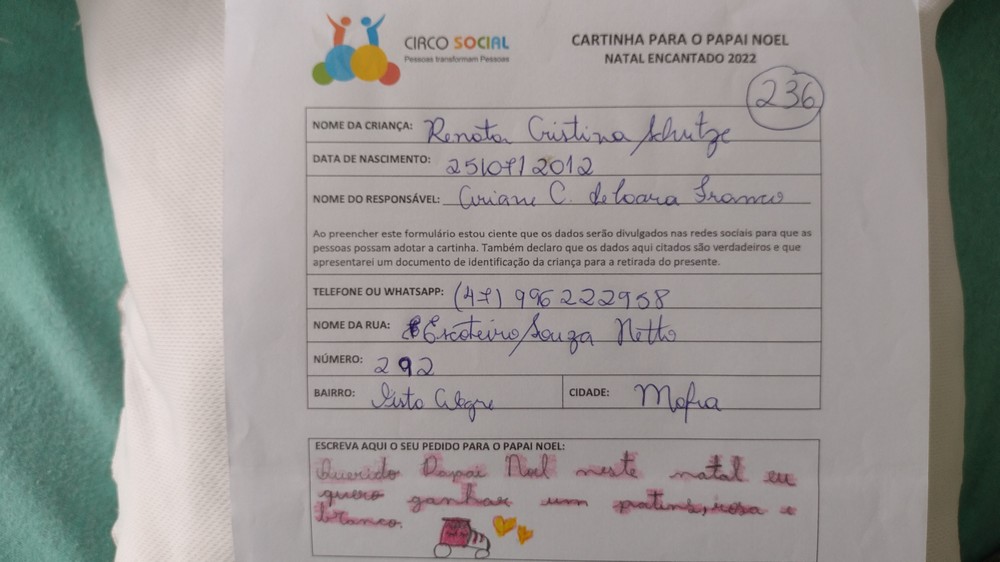 CIRCO SOCIAL
Pessoas transformam Pessoas
CARTINHA PARA O PAPAI NOEL
NATAL ENCANTADO 2022
236
NOME DA CRIANÇA: Renata Cristina Schutze
DATA DE NASCIMENTO: 25/07/2012
NOME DO RESPONSÁVEL: Ariane C. de Loara Franco
Ao preencher este formulário estou ciente que os dados serão divulgados nas redes sociais para que as
pessoas possam adotar a cartinha. Também declaro que os dados aqui citados são verdadeiros e que
apresentarei um documento de identificação da criança para a retirada do presente.
TELEFONE OU WHATSAPP: (47) 996222958
NOME DA RUA: Escoteiro Souza Netto
NÚMERO: 292
BAIRRO: Vista Alegre CIDADE: Mafra
ESCREVA AQUI O SEU PEDIDO PARA O PAPAI NOEL:
Querido Papai Noel neste natal eu
quero ganhar um patins, rosa e
branco.